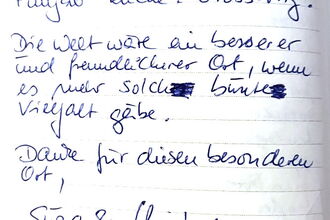 Die Welt wäre ein besserer
und freundlicherer Ort, wenn
es mehr solch bunte
Vielfalt gäbe.
Danke für diesen besonderen
Ort,